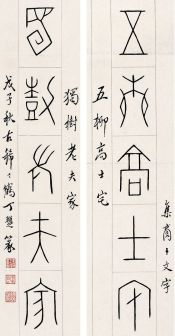 五柳高士宅
集商卜文字
五柳高士宅
獨樹老夫家
獨樹老夫家
戊子秋古稀叟鶴丁慧篆